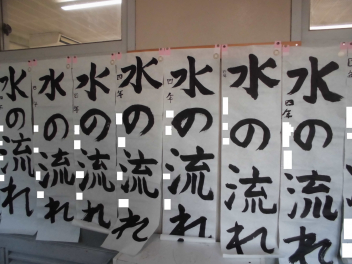 水の流れ
水の流れ
四年
水の流れ
四年
水の流れ
水の流れ
水の流れ
四年
水の流れ